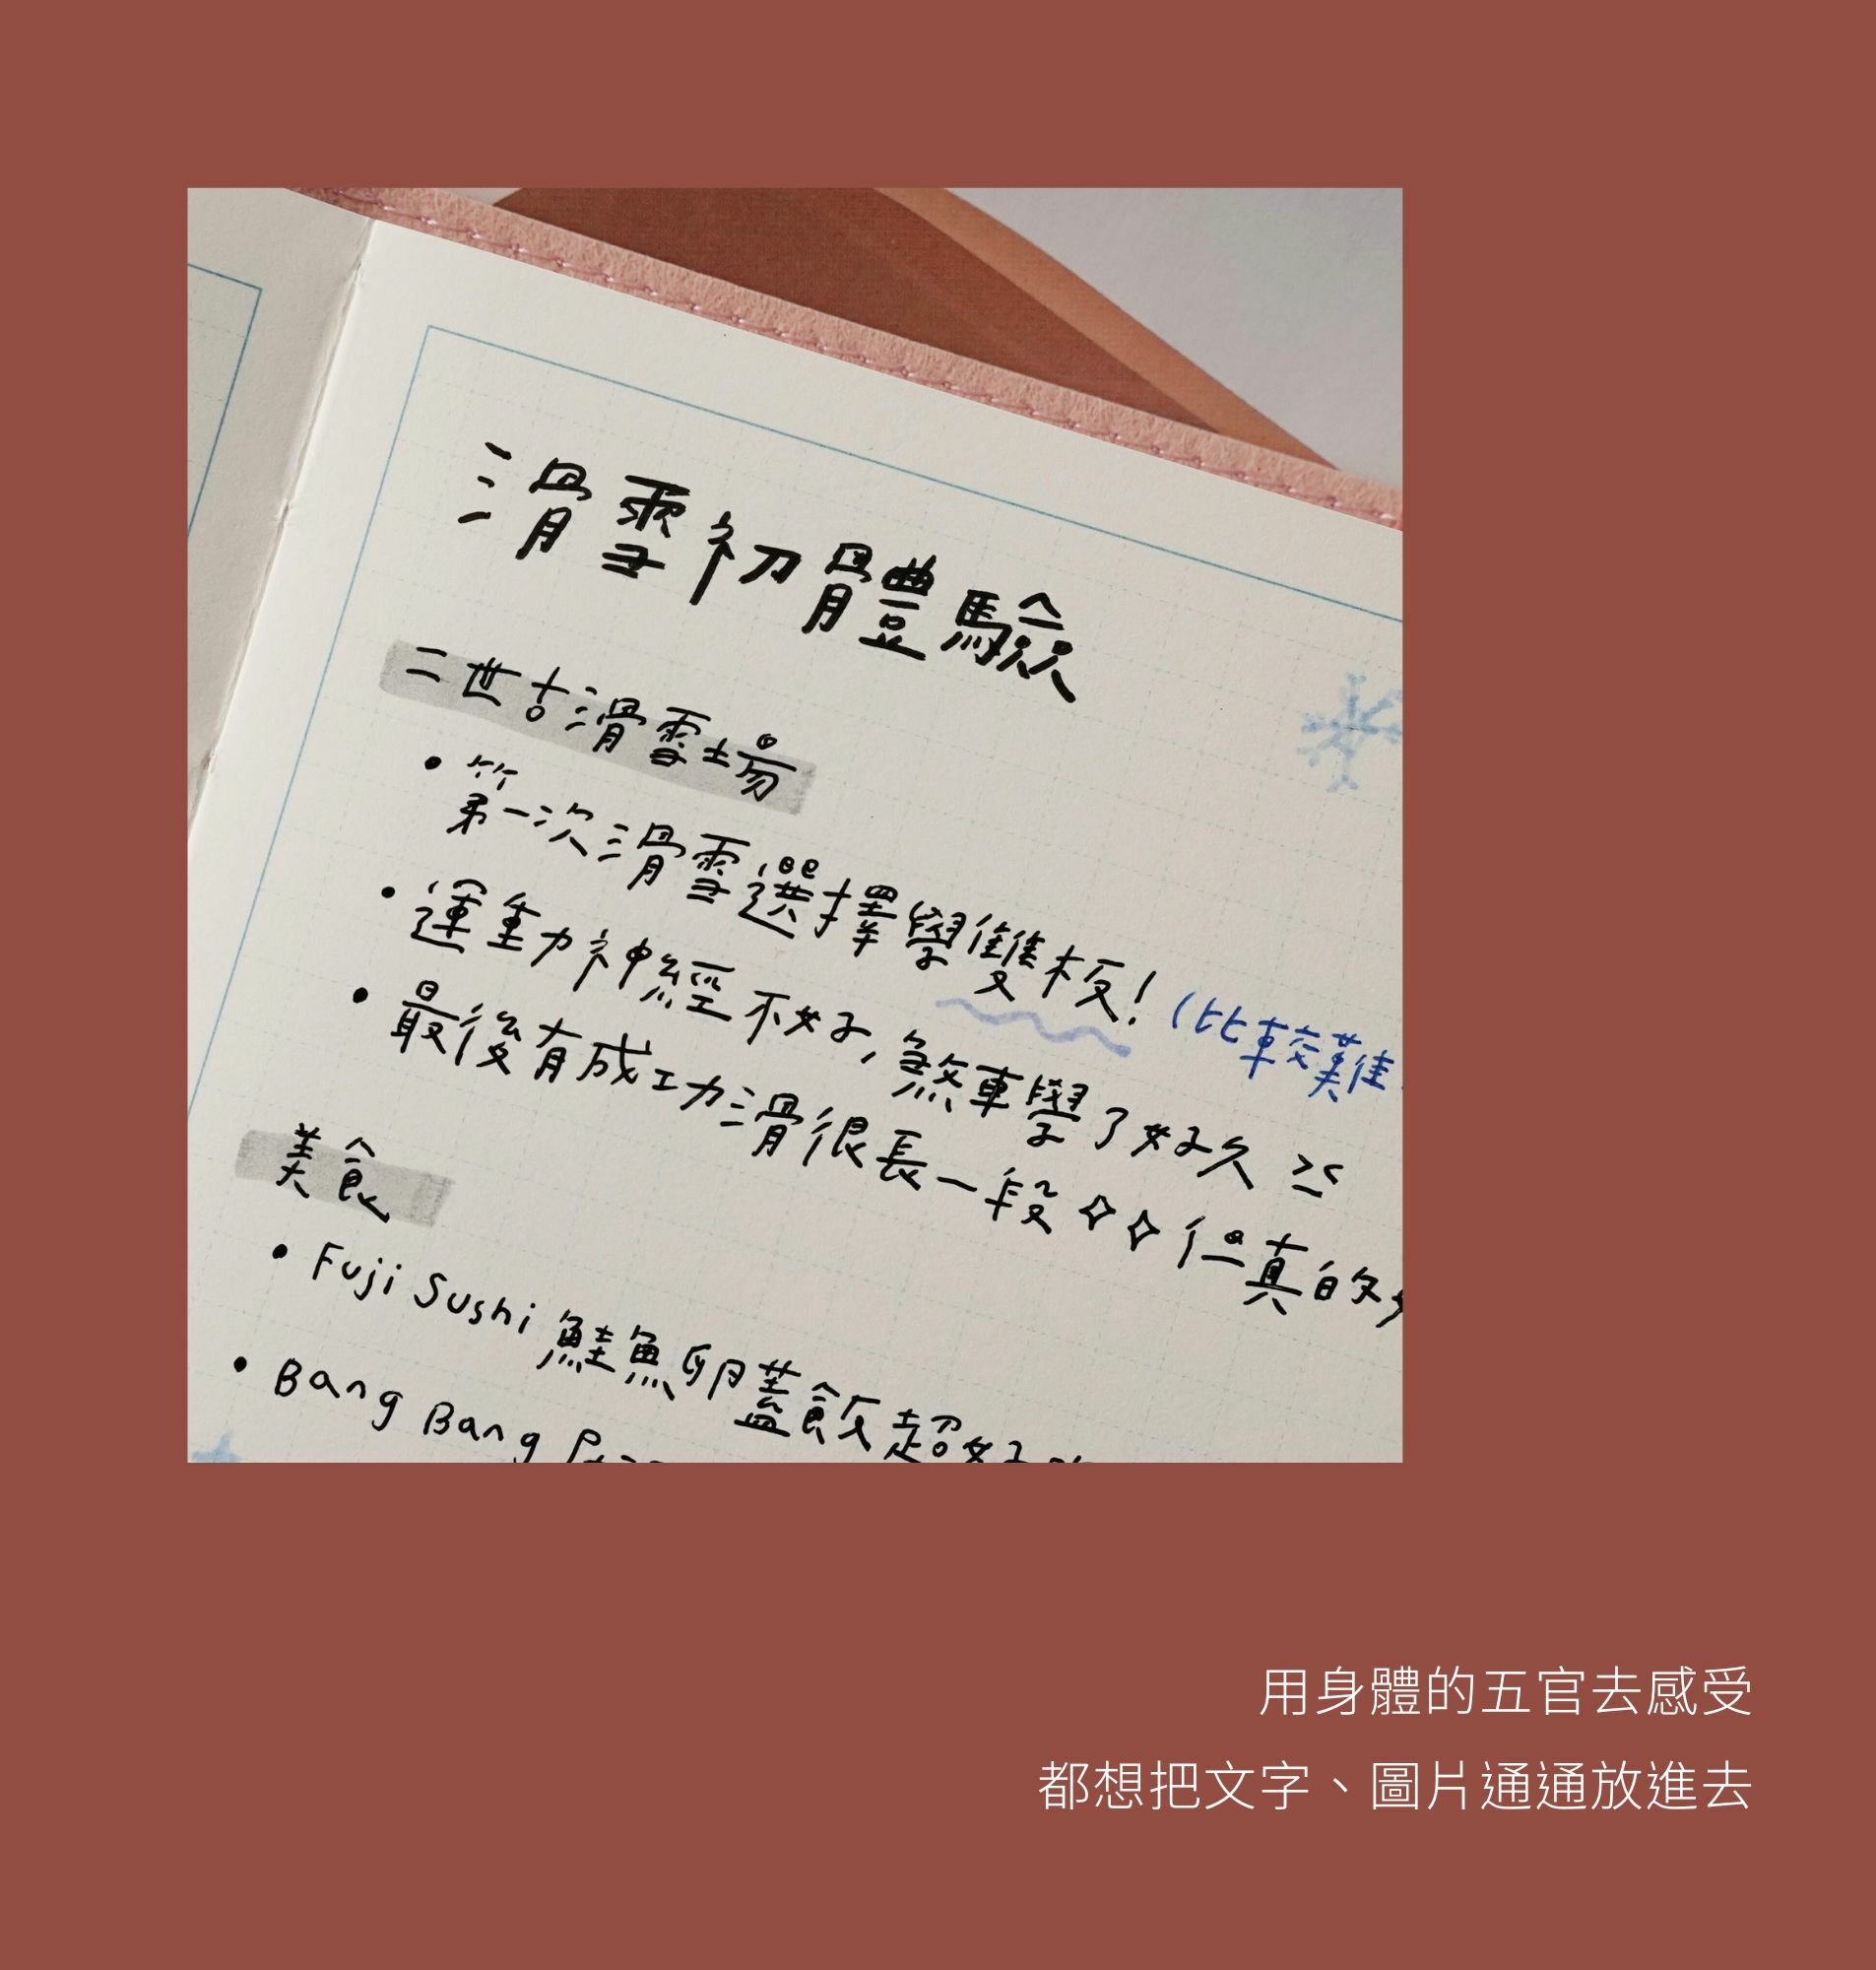 滑雪初體驗
二世古滑雪場
• 第一次滑雪選擇學雙板! (比較難
• 運動神經不好, 煞車學了好久 ><
• 最後有成功滑很長一段 ✧✧ 但真的
美食
• Fuji Sushi 鮭魚卵蓋飯超好
• Bang Bang
用身體的五官去感受
都想把文字、圖片通通放進去